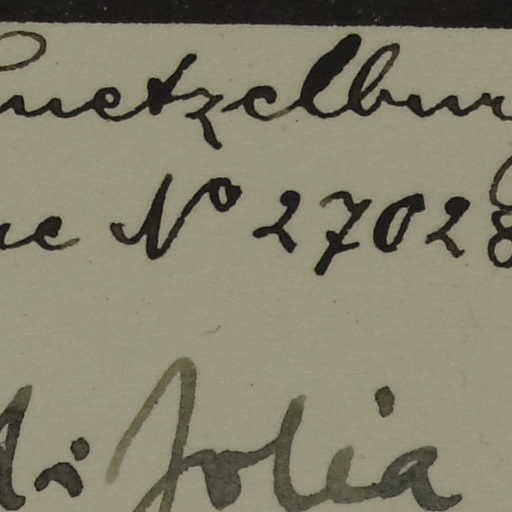 uetzelbur
ne Nº 27028
lifolia